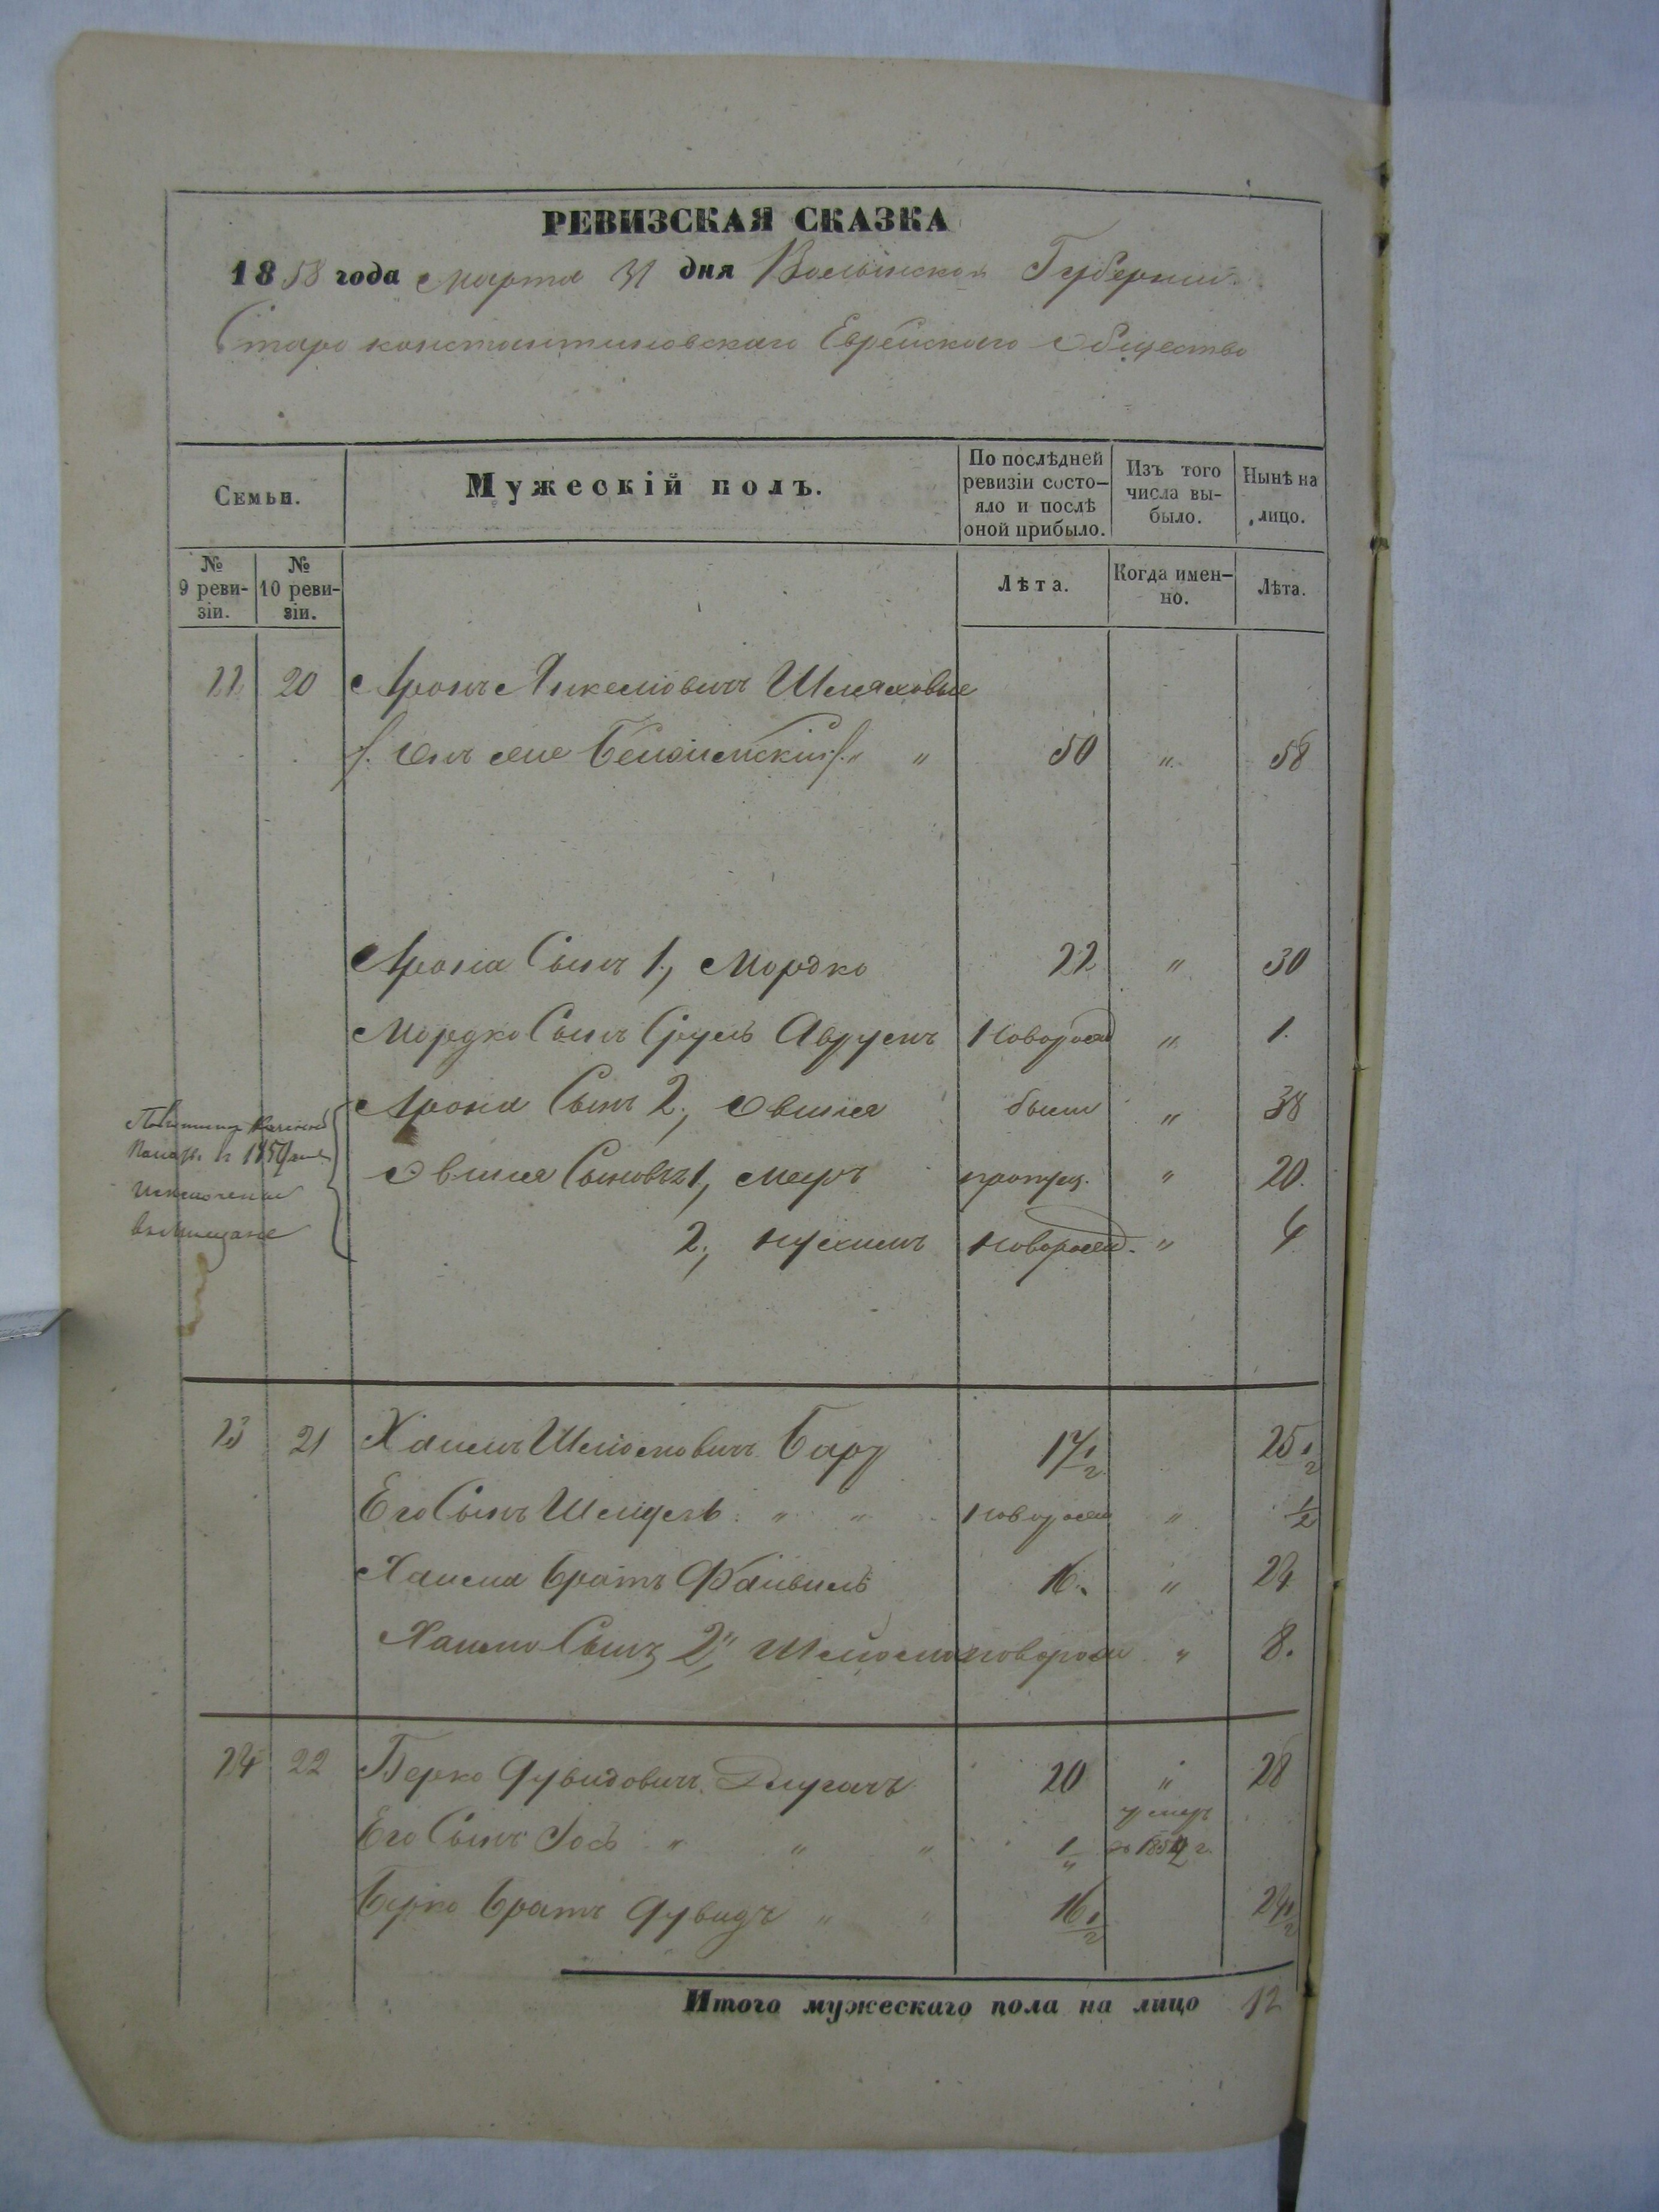 РЕВИЗСКАЯ СКАЗКА
1858 года Марта 31 дня Волынской Губернии
Старо константиновскаго Еврейскаго Общества
Семьи.
Мужескій полъ.
По послѣдней ревизіи состо-
яло и послѣ оной прибыло.
Изъ того числа вы-
было.
Нынѣ на лицо.
№ 9 реви-
зіи.
№ 10 реви-
зіи.
Лѣта.
Когда имен-
но.
Лѣта.
22 20 Аронъ Янкелювичъ
Онъ же 50 " 58
Арона Сынъ 1, Мордко 22 " 30
Мордко Сынъ Сруль Аврумъ Новорожд " 1.
Арона Сынъ 2, Овшия 38
Овшия Сыновъя 1, Меиръ пропущ. " 20.
2, Нухимъ Новорожд. " 4
1857
23 21 Хаимъ Шлиомовичъ Барг 17 1/2 25 1/2
Его Сынъ " " Новорожд " 1/2
Хаима братъ Файвиль 16. " 24
Хаимо Сынъ 2, Шлиомо новорож " 8.
24 22 Берко Дувидовичъ 20 " 28
Его Сынъ Иось " " " 1 умеръ
въ 1852 г.
Берко братъ Дувидъ " " 16 1/2 24 1/2
Итого мужескаго пола на лицо 12